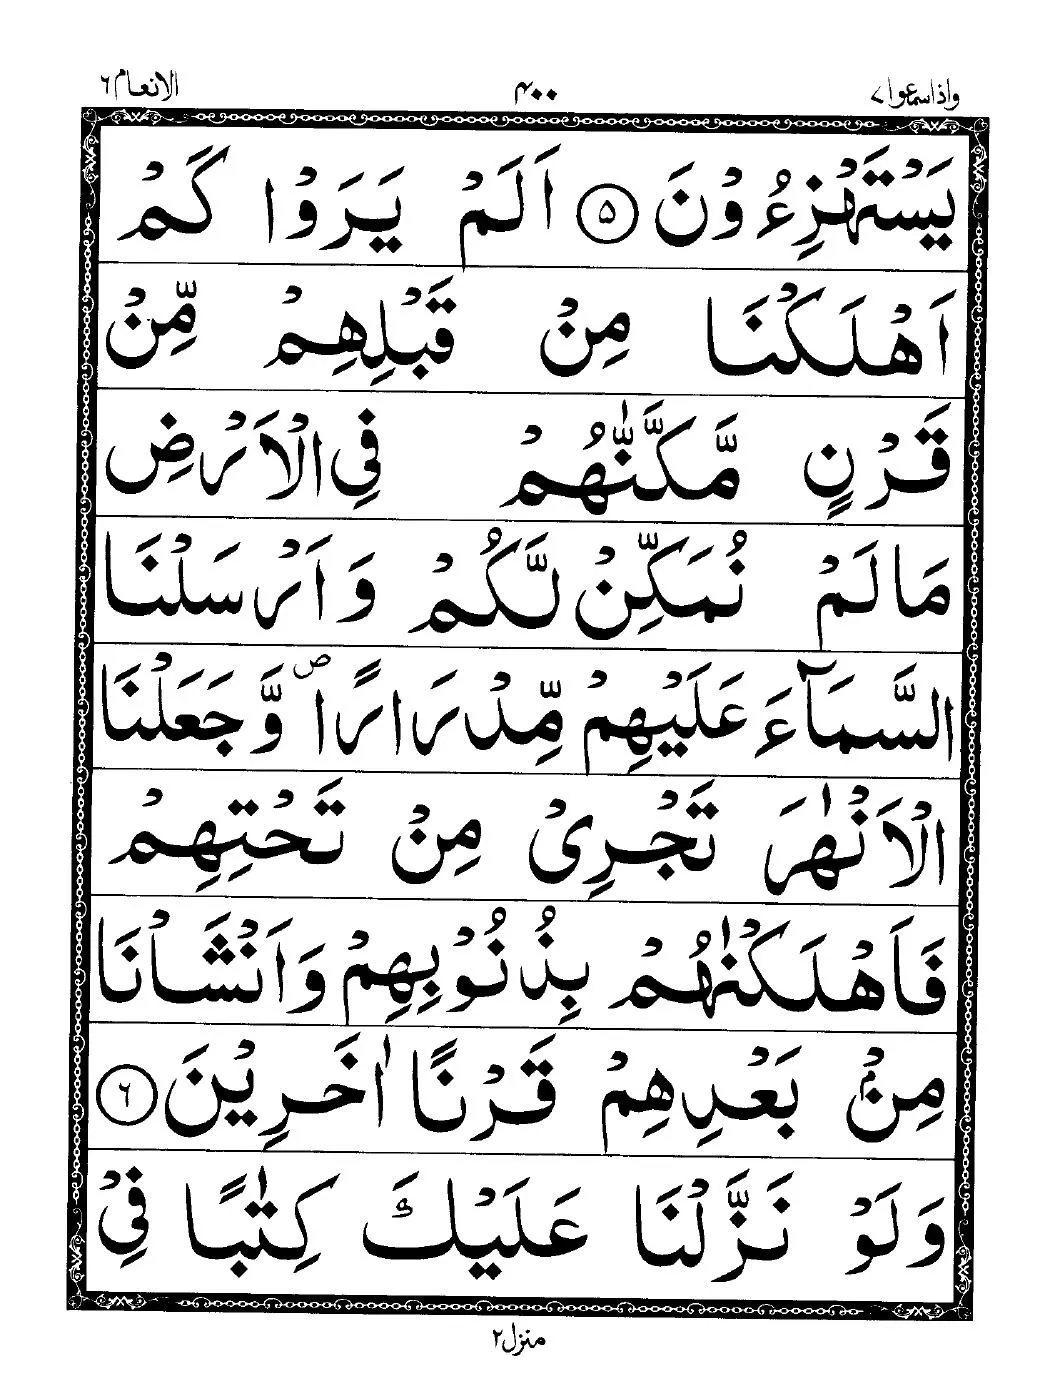 واذاسماعوا ٧ ۴۰۰ الانعام ٦
يَسۡتَهۡزِءُوۡنَ ۵ اَلَمۡ يَرَوۡا كَمۡ
اَهۡلَكۡنَا مِنۡ قَبۡلِهِمۡ مِّنۡ
قَرۡنٍ مَّكَّنّٰهُمۡ فِى الۡاَرۡضِ
مَا لَمۡ نُمَكِّنۡ لَّكُمۡ وَاَرۡسَلۡنَا
السَّمَآءَ عَلَيۡهِمۡ مِّدۡرَارًا ص وَّجَعَلۡنَا
الۡاَنۡهٰرَ تَجۡرِىۡ مِنۡ تَحۡتِهِمۡ
فَاَهۡلَكۡنٰهُمۡ بِذُنُوۡبِهِمۡ وَاَنۡشَاۡنَا
مِنۡۢ بَعۡدِهِمۡ قَرۡنًا اٰخَرِيۡنَ ٦
وَلَوۡ نَزَّلۡنَا عَلَيۡكَ كِتٰبًا فِىۡ
منزل ٢